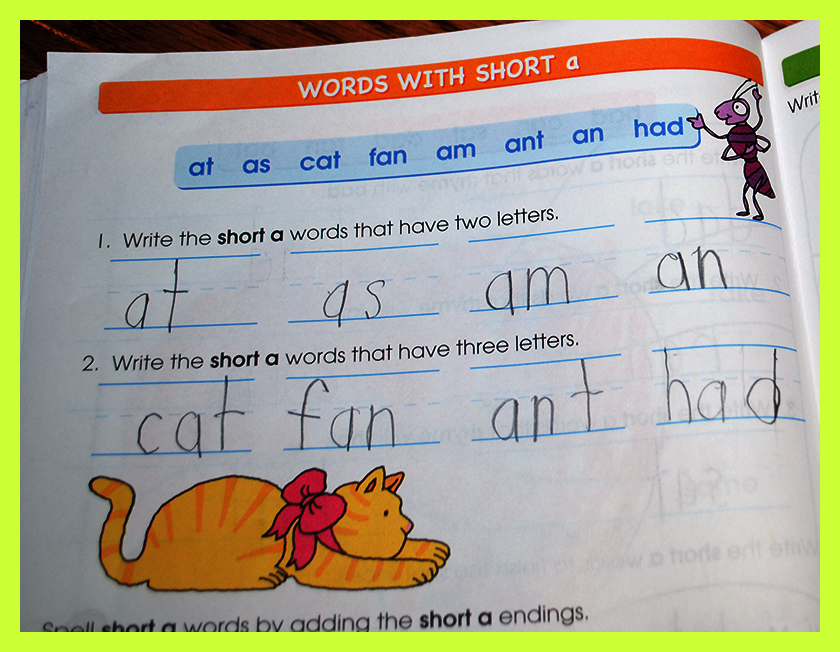 WORDS WITH SHORT a
Writ
at as cat fan am ant an had
1. Write the short a words that have two letters.
at as am an
2. Write the short a words that have three letters.
cat fan ant had
Spell short a words by adding the short a endings.